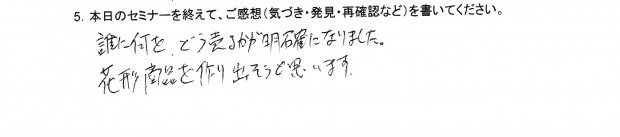 5. 本日のセミナーを終えて、ご感想(気づき・発見・再確認など)を書いてください。
誰に何を、どう売るかが明確になりました。
花形商品を作り出そうと思います。